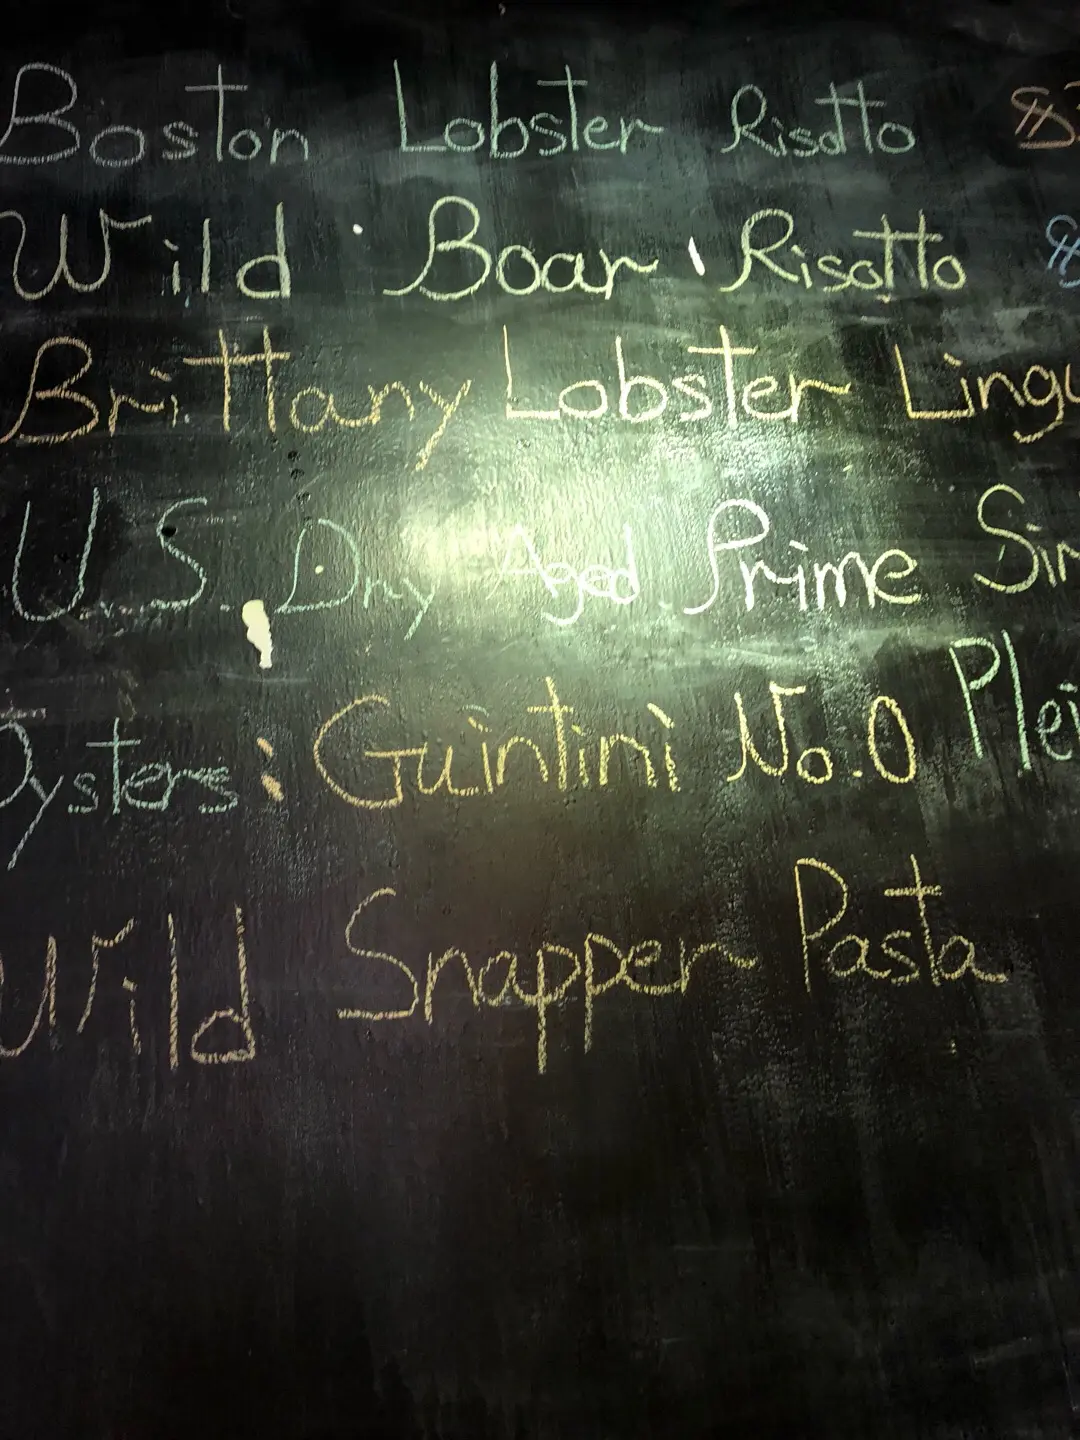 Boston Lobster Risotto $
Wild Boar Risotto $
Brittany Lobster Lingu
U.S. Dry Aged Prime Sir
Oysters: Guintini No.0 Plei
Wild Snapper Pasta